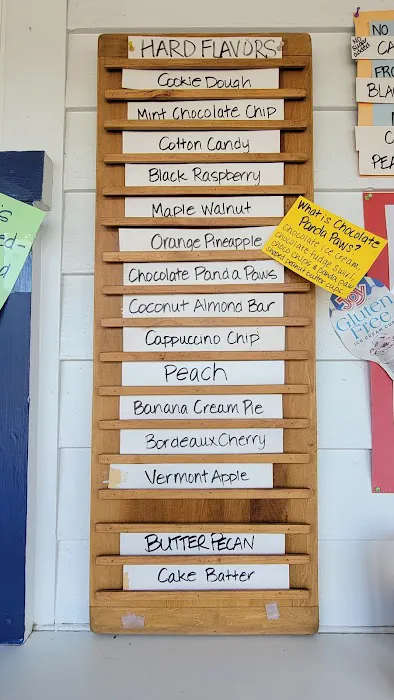 HARD FLAVORS
Cookie Dough
Mint Chocolate Chip
Cotton Candy
Black Raspberry
Maple Walnut
Orange Pineapple
Chocolate Panda Paws
Coconut Almond Bar
Cappuccino Chip
Peach
Banana Cream Pie
Bordeaux Cherry
Vermont Apple
BUTTER PECAN
Cake Batter
What is Chocolate
Panda Paws?
Chocolate ice cream,
chocolate fudge swirl,
choco chips & panda paw
shaped peanut butter cups
Joy
Gluten
Free
ICE CREAM CONES
NO
CA
FRO
BLA
C
PEA